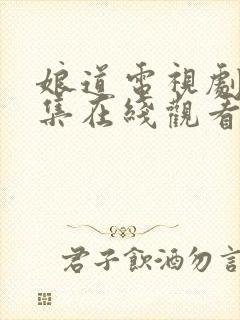 娘道電視劇
集在綫觀看
君子飲酒勿言